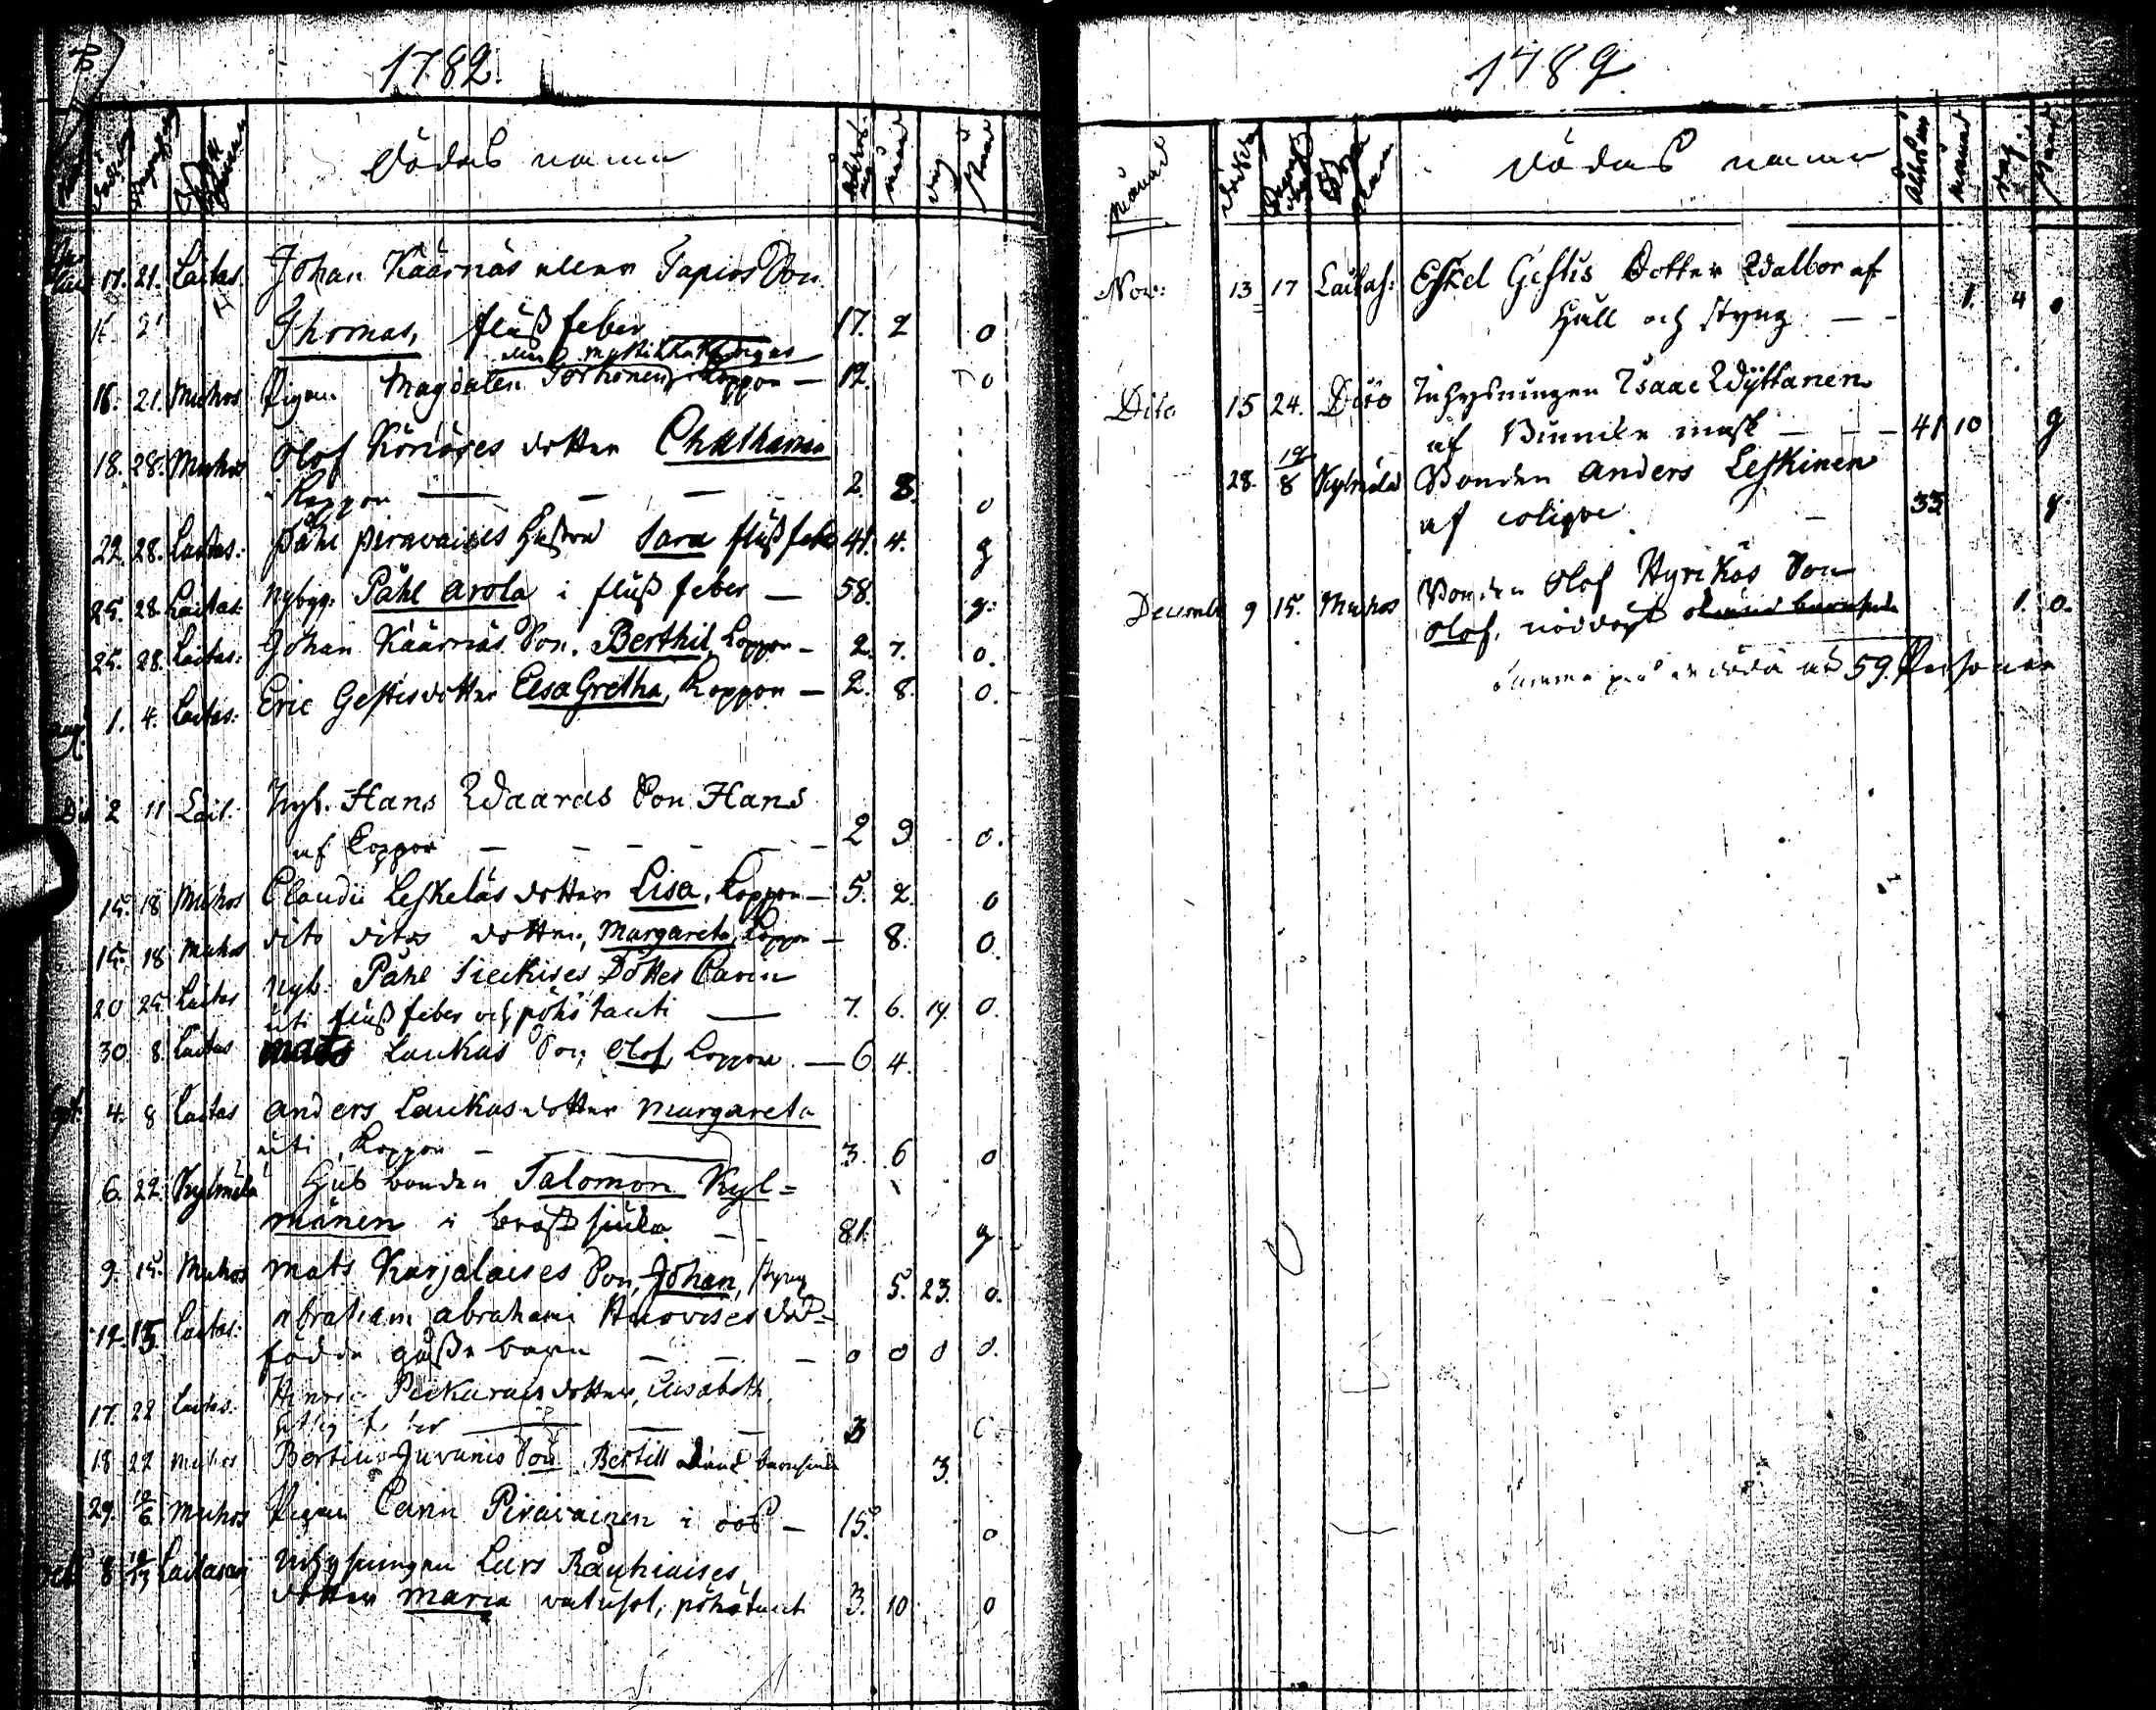 1782.
Dödas namn
17. 21. Laitas. Johan Käärnäs eller Tapios Son
Thomas, fluß feber 17. 2 o
16. 21. Muhos Pigan Magdalen Torhonen, Koppon — 12. o
18. 28. Muhos Olof Köriöses dotter Chatharina
Koppon — — — 2. 8. o
22. 28. Laitas: Påhl Piravaises Hustru Sara fluß feber 41. 4. g
25. 28. Laitas: Nybygg: Påhl Arola i fluß feber — 58. g:
25. 28. Laitas: Johan Käärnäs Son. Berthil, Koppor — 2. 7. o.
Aug: 1. 4. Laitas: Eric Gestis dotter Elsa Gretha, Koppon — 2. 8. o.
Dit 2 11 Lait: Nyb. Hans Waaras Son Hans
af Koppor — — — — — 2 9 o.
15. 18 Muhos Claudii Leskeläs dotter Lisa, Koppon — 5. 2. o
15. 18 Muhos dito ditos dotter, Margareta, Koppon — 8. o.
20 25 Laitas Nyb. Påhl Sieckises Dotter Carin
uti fluß feber och pöhötauti — 7. 6. 14. o.
30. 8. Laitas Mats Laukas Son Olof, Koppon. — 6 4.
Sept: 4. 8 Laitas Anders Laukas dotter Margareta
uti Koppon — 3. 6 o
6. 22. Kylmälä Husbonden Salomon Kyl=
mänen i bröstsjuka — — 81. g.
9. 15. Muhos Mats Karjalaises Son, Johan, styng 5. 23. o.
14. 15. Laitas: Abraham Abrahami Huovises död=
födde gåsse barn — — — o o o o.
17. 22 Laitas: Henric Pickarais dotter, Elisabeth,
3
18 22 Muhos Bertill Juvanis Son Bertill okänd barnsiuka 3.
29. 10/6 Muhos Pigan Carin Piravainen i — 15. o
Oct: 8 10/13 Laitasari Inhysningen Lars Räyhiäises,
dotter Maria pöhötauti 3. 10 o
1782
Månad
Dödas namn
Åhr
månad
dag
Nov: 13 17 Laitas: Eskel Gestis Dotter Walbor af
Håll och styng — — 1. 4 o
Dito 15 24. Dito Inhysningen Isaac Wyttanen
af Binnike mask — — — 41 10 g
28. 12/8 Kylmälä Bonden Anders Leskinen
af colique — 33. g.
Decemb 9 15. Muhos Bonden Olof Hyrikäs Son
Olof, nöddöpt okänd barnsiuka 1. o.
Summa på de döda är 59. Personer